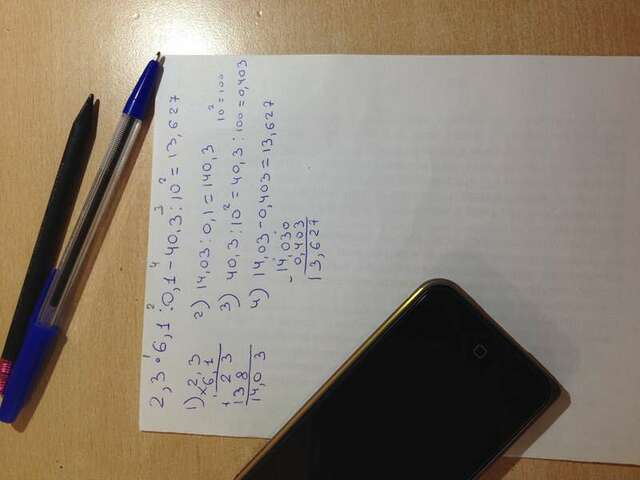 1 2 4 3
2,3 • 6,1 : 0,1 - 40,3 : 10² = 13,627
1) 2,3
× 6,1
2 3
13 8
14,03
2) 14,03 : 0,1 = 140,3
10² = 100
3) 40,3 : 10² = 40,3 : 100 = 0,403
4) 14,03 - 0,403 = 13,627
14,030
- 0,403
13,627